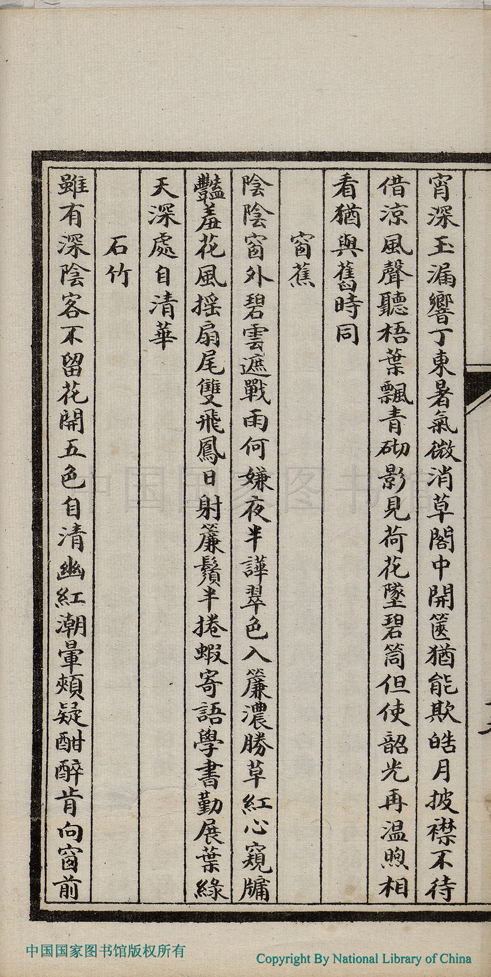 宵深玉漏響丁東暑氣微消草閣中開篋猶能欺皓月披襟不待
借涼風聲聽梧葉飄青砌影見荷花墜碧筒但使韶光再溫煦相
看猶與舊時同
窗蕉
陰陰窗外碧雲遮戰雨何嫌夜半譁翠色入簾濃勝草紅心窺牖
豔羞花風搖扇尾雙飛鳳日射簾鬚半捲蝦寄語學書勤展葉綠
天深處自清華
石竹
雖有深陰客不留花開五色自清幽紅潮暈頰疑酣醉肯向窗前
中国国家图书馆
中国国家图书馆版权所有
Copyright By National Library of China